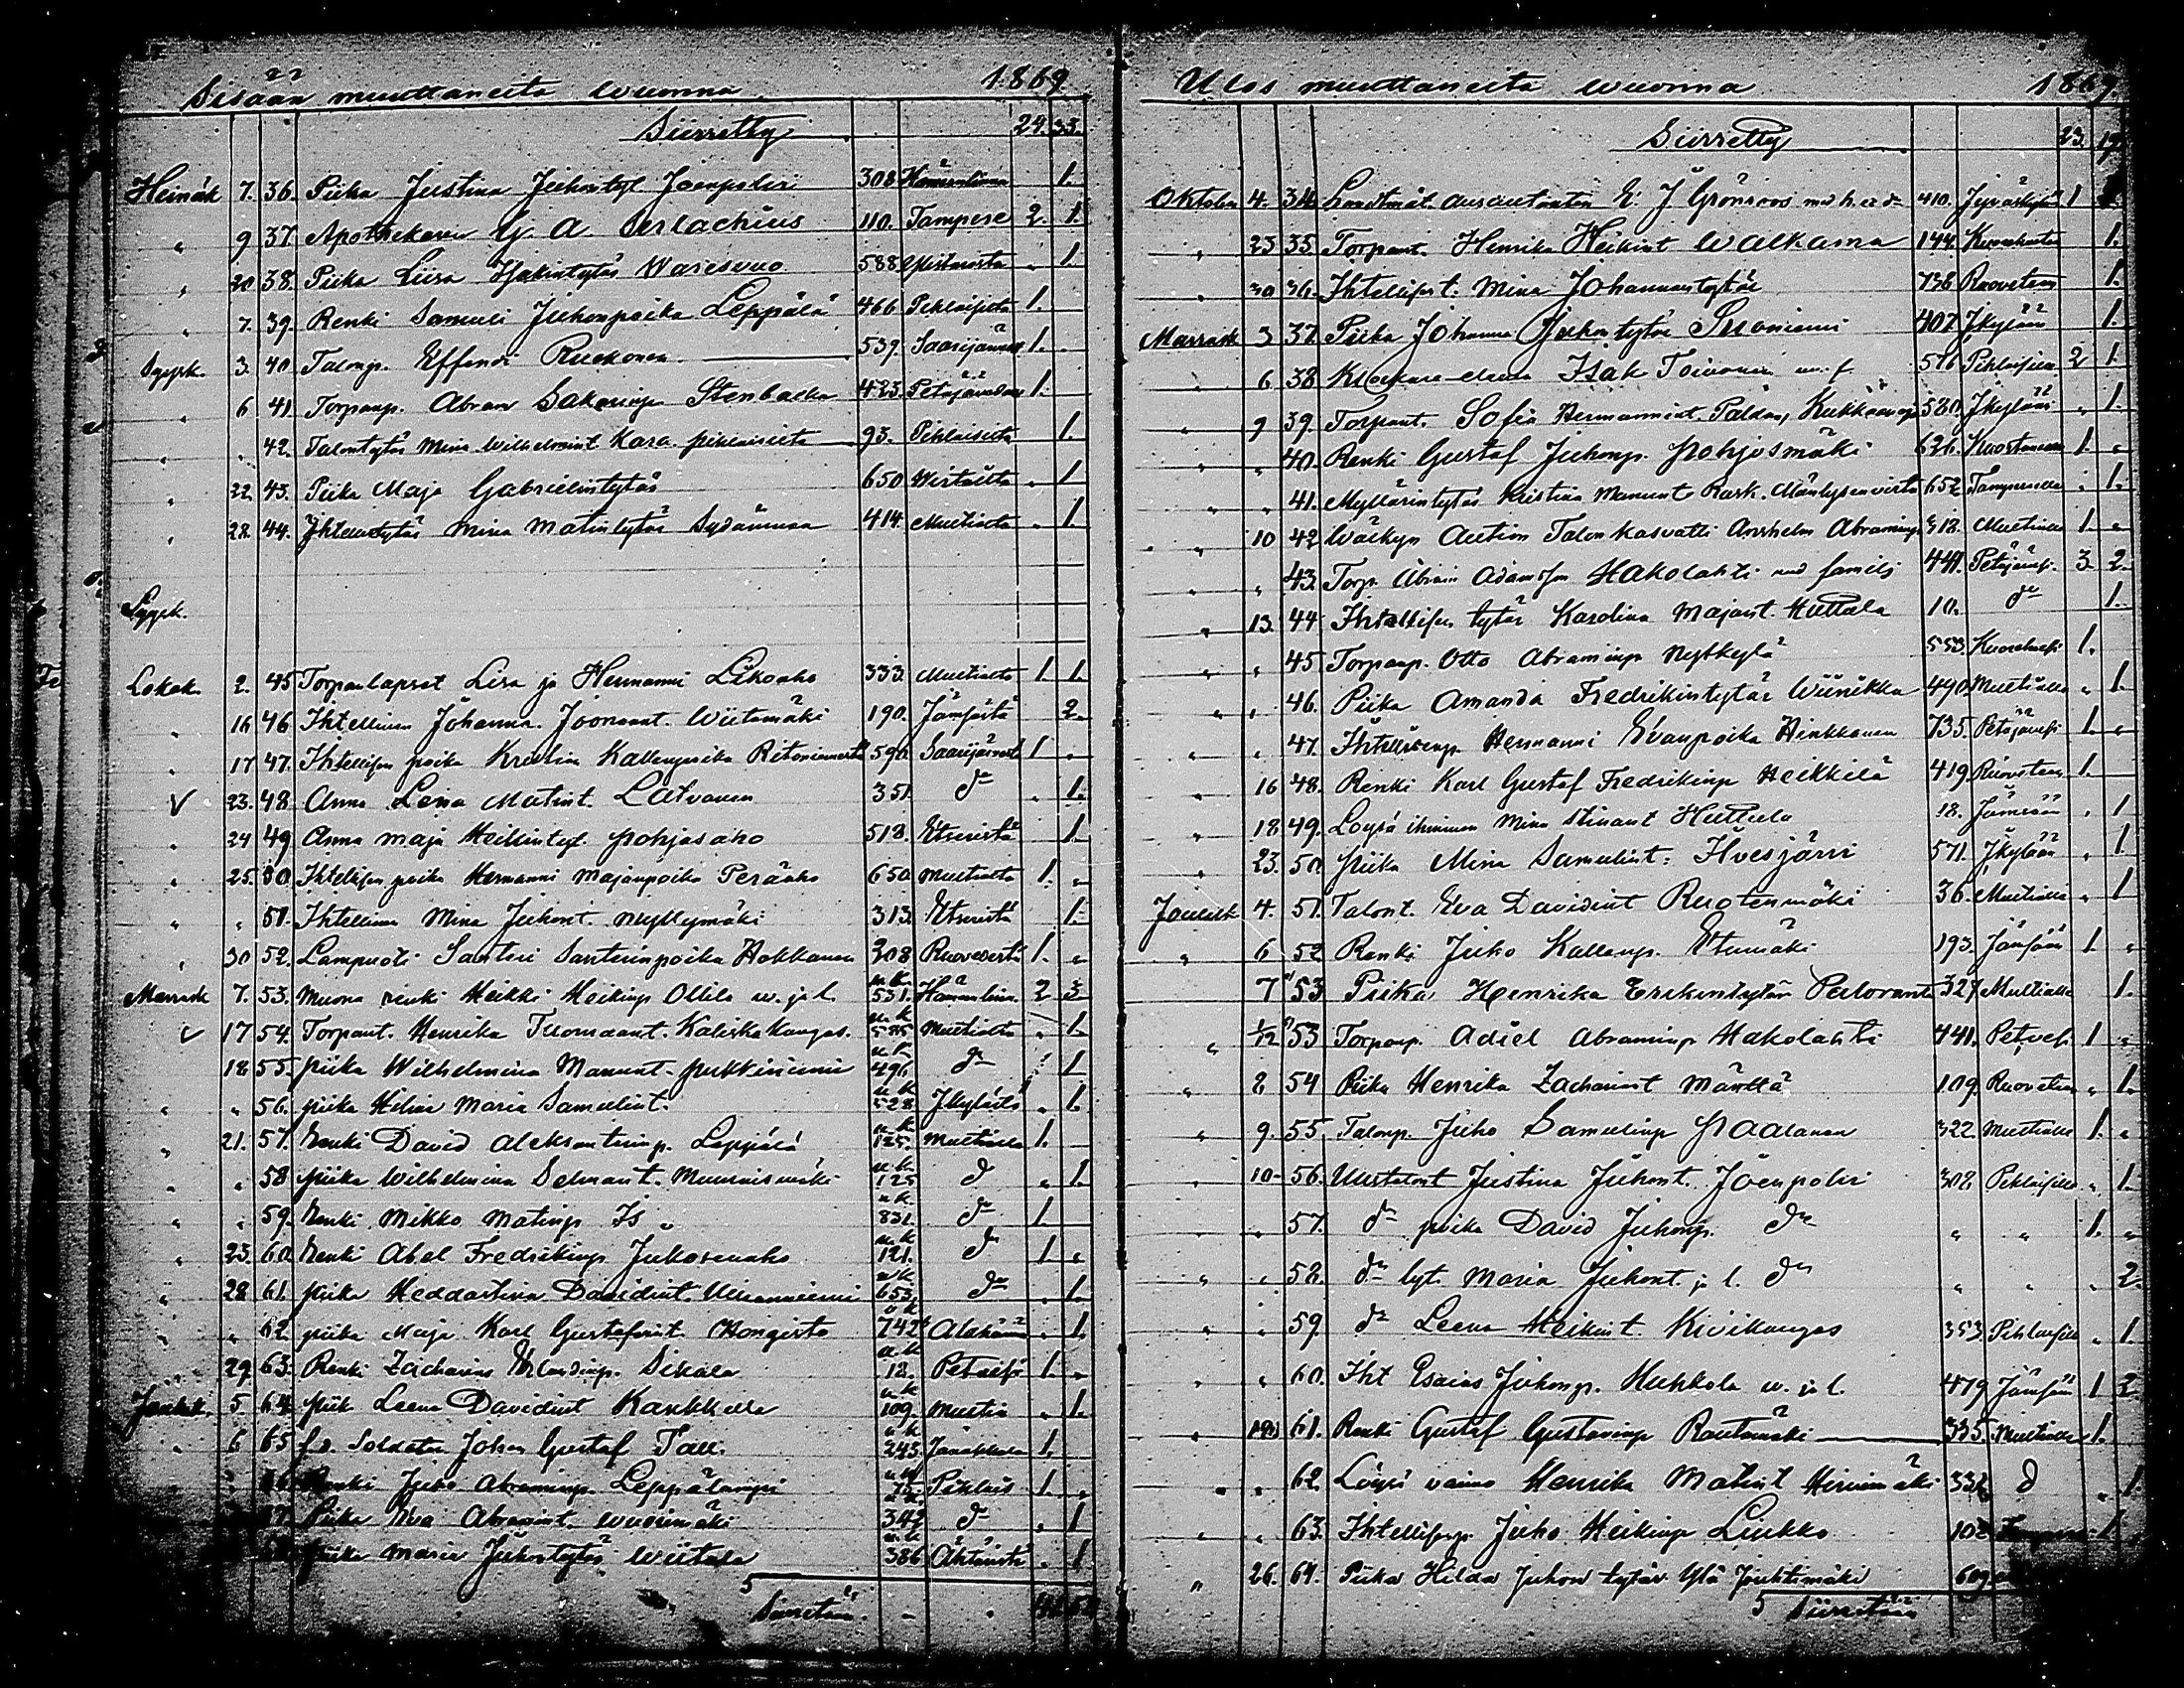 Sisään muuttaneita wuonna 1869
Siirretty 24. 33.
Heinäk 7. 36. Piika Justina Juhontyt Joenpolvi 308 Hämeenlinna 1.
" 9 37. Apothekaren G. A. Serlachius 110. Tampere 2. 1.
" 20 38. Piika Liisa Isakintytär Waresvuo 588 " 1.
" 7. 39. Renki Samuli Juhonpoika Leppälä 466 Pihlajasta 1.
Syysk. 3. 40. Talonp. Effendi Ruokonen 539. Saarijärveltä 1.
" 6 41. Torpanp. Abram Sakarinp. Stenbacka 423. Petäjävedestä 1.
" " 42. Talontytär Mina Wilhelmint. Kara. pihlaisista 93. Pihlaisista 1.
" 22 43. Piika Maja Gabrielintytär 650 Wirtailta " 1
" 28 44. Ihtellistytär Mina Matintytär Sydänmaa 414 Multialta " 1.
Syysk.
Lokak. 2. 45 Torpanlapset Lisa ja Hermanni Likoaho 333. Multialta 1. 1.
" 16 46 Ihtellinen Johanna Joonaant. Wiitamäki 190. Jämsästä 2.
" 17 47. Ihtellisen poika Kristian Kallenpoika Ritoniemestä 590. Saarijärveltä 1 "
V 23. 48 Anna Leena Matint. Latvanen 351. do " 1.
" 24 49 Anna Maja Heikintyt. Pohjasaho 518. Etseristä 1.
" 25. 50 Ihtellisen poika Hermanni Majanpoika Peräaho 650 Multialta 1. "
" " 51. Ihtellinen Mina Juhont. Myllymäki 313. Etseristä 1.
" 30 52. Lampuoti Santeri Santerinpoika Hokkanen 308 Ruovedestä 1. "
Marrask 7. 53. Muona renki Heikki Heikinp Ollila w. ja l. u.k. 531. Hämeenlinn. 2 3
V 17 54. Torpant. Henrika Tuomaant. Kaliskakangas. u.k. 585 Multialta " 1.
18 55. piika Wilhelmina Manunt. Pukkiniemi u.k. 496 do 1
" " 56. piika Helina Maria Samulint. u.k. 528 Jkylästä " 1.
" 21. 57. Renki David Aleksanterinp. Leppälä u.k. 125. Multialta 1.
" " 58 piika Wilhelmina Selmant. Muurismäki u.k. 125 d " 1.
" " 59. Renki Mikko Matinp Is " u.k. 831. do 1
" 23. 60. Renki Abel Fredrikinp Jukosenaho u.k. 121. do 1 "
" 28 61. piika Heddastina Davidint. u.k. 653. do " 1.
" " 62 piika Maja Karl Gustafsint. Hongisto u.k. 742 " 1.
29. 63. Renki Zacharias Erlandinp. Sikala u.k. 12. 1. "
Jouluk. 5. 64. piik Leena Davidint Kaukkala u.k. 109. Multia " 1.
" 6 65 f.d. Soldaten Johan Gustaf Tall. u.k. 245. Janakkala 1.
66 Renki Juho Abraminp. Leppälampi u.k. 75. Pihlais 1 "
67. Piika Eva Abramint. Wuorimäki u.k. 342 do " 1
Piika Maria Juhontytär Wiitala u.k. 386 Ähtäristä " 1
Siirretään
Ulos muuttaneita wuonna 1869.
Siirretty 23. 19
Oktober 4. 34. Landtmät. auscultanten E. J Grönroos med h. 410. Jyväskylä 1
" 23 35. Torpant. Henrika Heikint Walkama 144. 1.
" 30 36. Ihtellisent. Mina Johannantytär 736 Ruoveteen 1.
Marrask 3 37. Piika Johanna Juhontytär Suoniemi 407. Jkylään 1.
" 6 38 Klockare-eleven Isak Toivonen m. f. 516 2 1.
" 9 39. Torpant. Sofia Hermannint. Paldan, 580. Jkylään " 1.
" " 40. Renki Gustaf Juhonp. Pohjosmäki 626. 1. "
" " 41. Myllärintytär Kristina Manunt. Rask. Mäntysenvirta 652. Tampereelle " 1.
" 10 42 Wäikyn Aution Talon kasvatti Anshelm Abraminp 318. Multialle 1. "
" " 43. Torp. Abram Adamsson Hakolahti med familj 441. Petäjäves. 3. 2.
" 13 44 Ihtellisen tytär Karolina Majant. Huttala 10. do 1.
" " 45 Torpanp. Otto Abraminp Nytkylä 553. 1.
" " 46. Piika Amanda Fredrikintytär Wiinikka 490. Multialle " 1.
" " 47. Ihtellisenp. Hermanni Evanpoika Hinkkanen 735. Petäjävesi 1. "
" 16 48. Renki Karl Gustaf Fredrikinp Heikkilä 419 Ruoveteen 1.
" 18 49. Loysä ihminen Mina Stinant Huttula 18. Jämsään " 1
" 23. 50. piika Mina Samulint. Ilvesjärvi 571. Jkylään " 1
Jouluk 4. 51. Talont. Eva Davidint Ruotenmäki 36. Multialle " 1
" 6 52 Renki Juho Kallenp. Etumäki 193. Jämsään 1 "
7 53 Piika Henrika Erikintytär Palovanta 327 Multialle 1.
" 1/12 53 Torpanp. Adiel Abraminp Hakolahti 441. Petvesi 1 "
" 8 54 Piika Henrika Zachariant Mänttä 109. Ruoveteen " 1.
" 9. 55. Talonp. Juho Samulinp Paalanen 322. Multialle 1. "
" 10 56. Uustalont Justina Juhont. Joenpolvi 308. " 1.
" " 57. do poika David Juhonp. do " " 1. "
" " 58. do tyt. Maria Juhont. j. l. do " " " 2.
" " 59 do Leena Heikint. Kivikangas 353. " 1
" " 60. Iht Esaias Juhonp. Huhkola w. ja l. 479 Jämsään 1 2
" 61. Renki Gustaf Gustavinp Rautamäki 335. Multialle 1.
" " 62. Löysä vaimo Henrika Matint Hirvimäki 332 d " 1.
" " 63. Ihtellisenp. Juho Heikinp Luukko 102 1.
" 26. 64. Piika Hilda Juhon tytär Ylä Juhtimäki 609
Siirretään